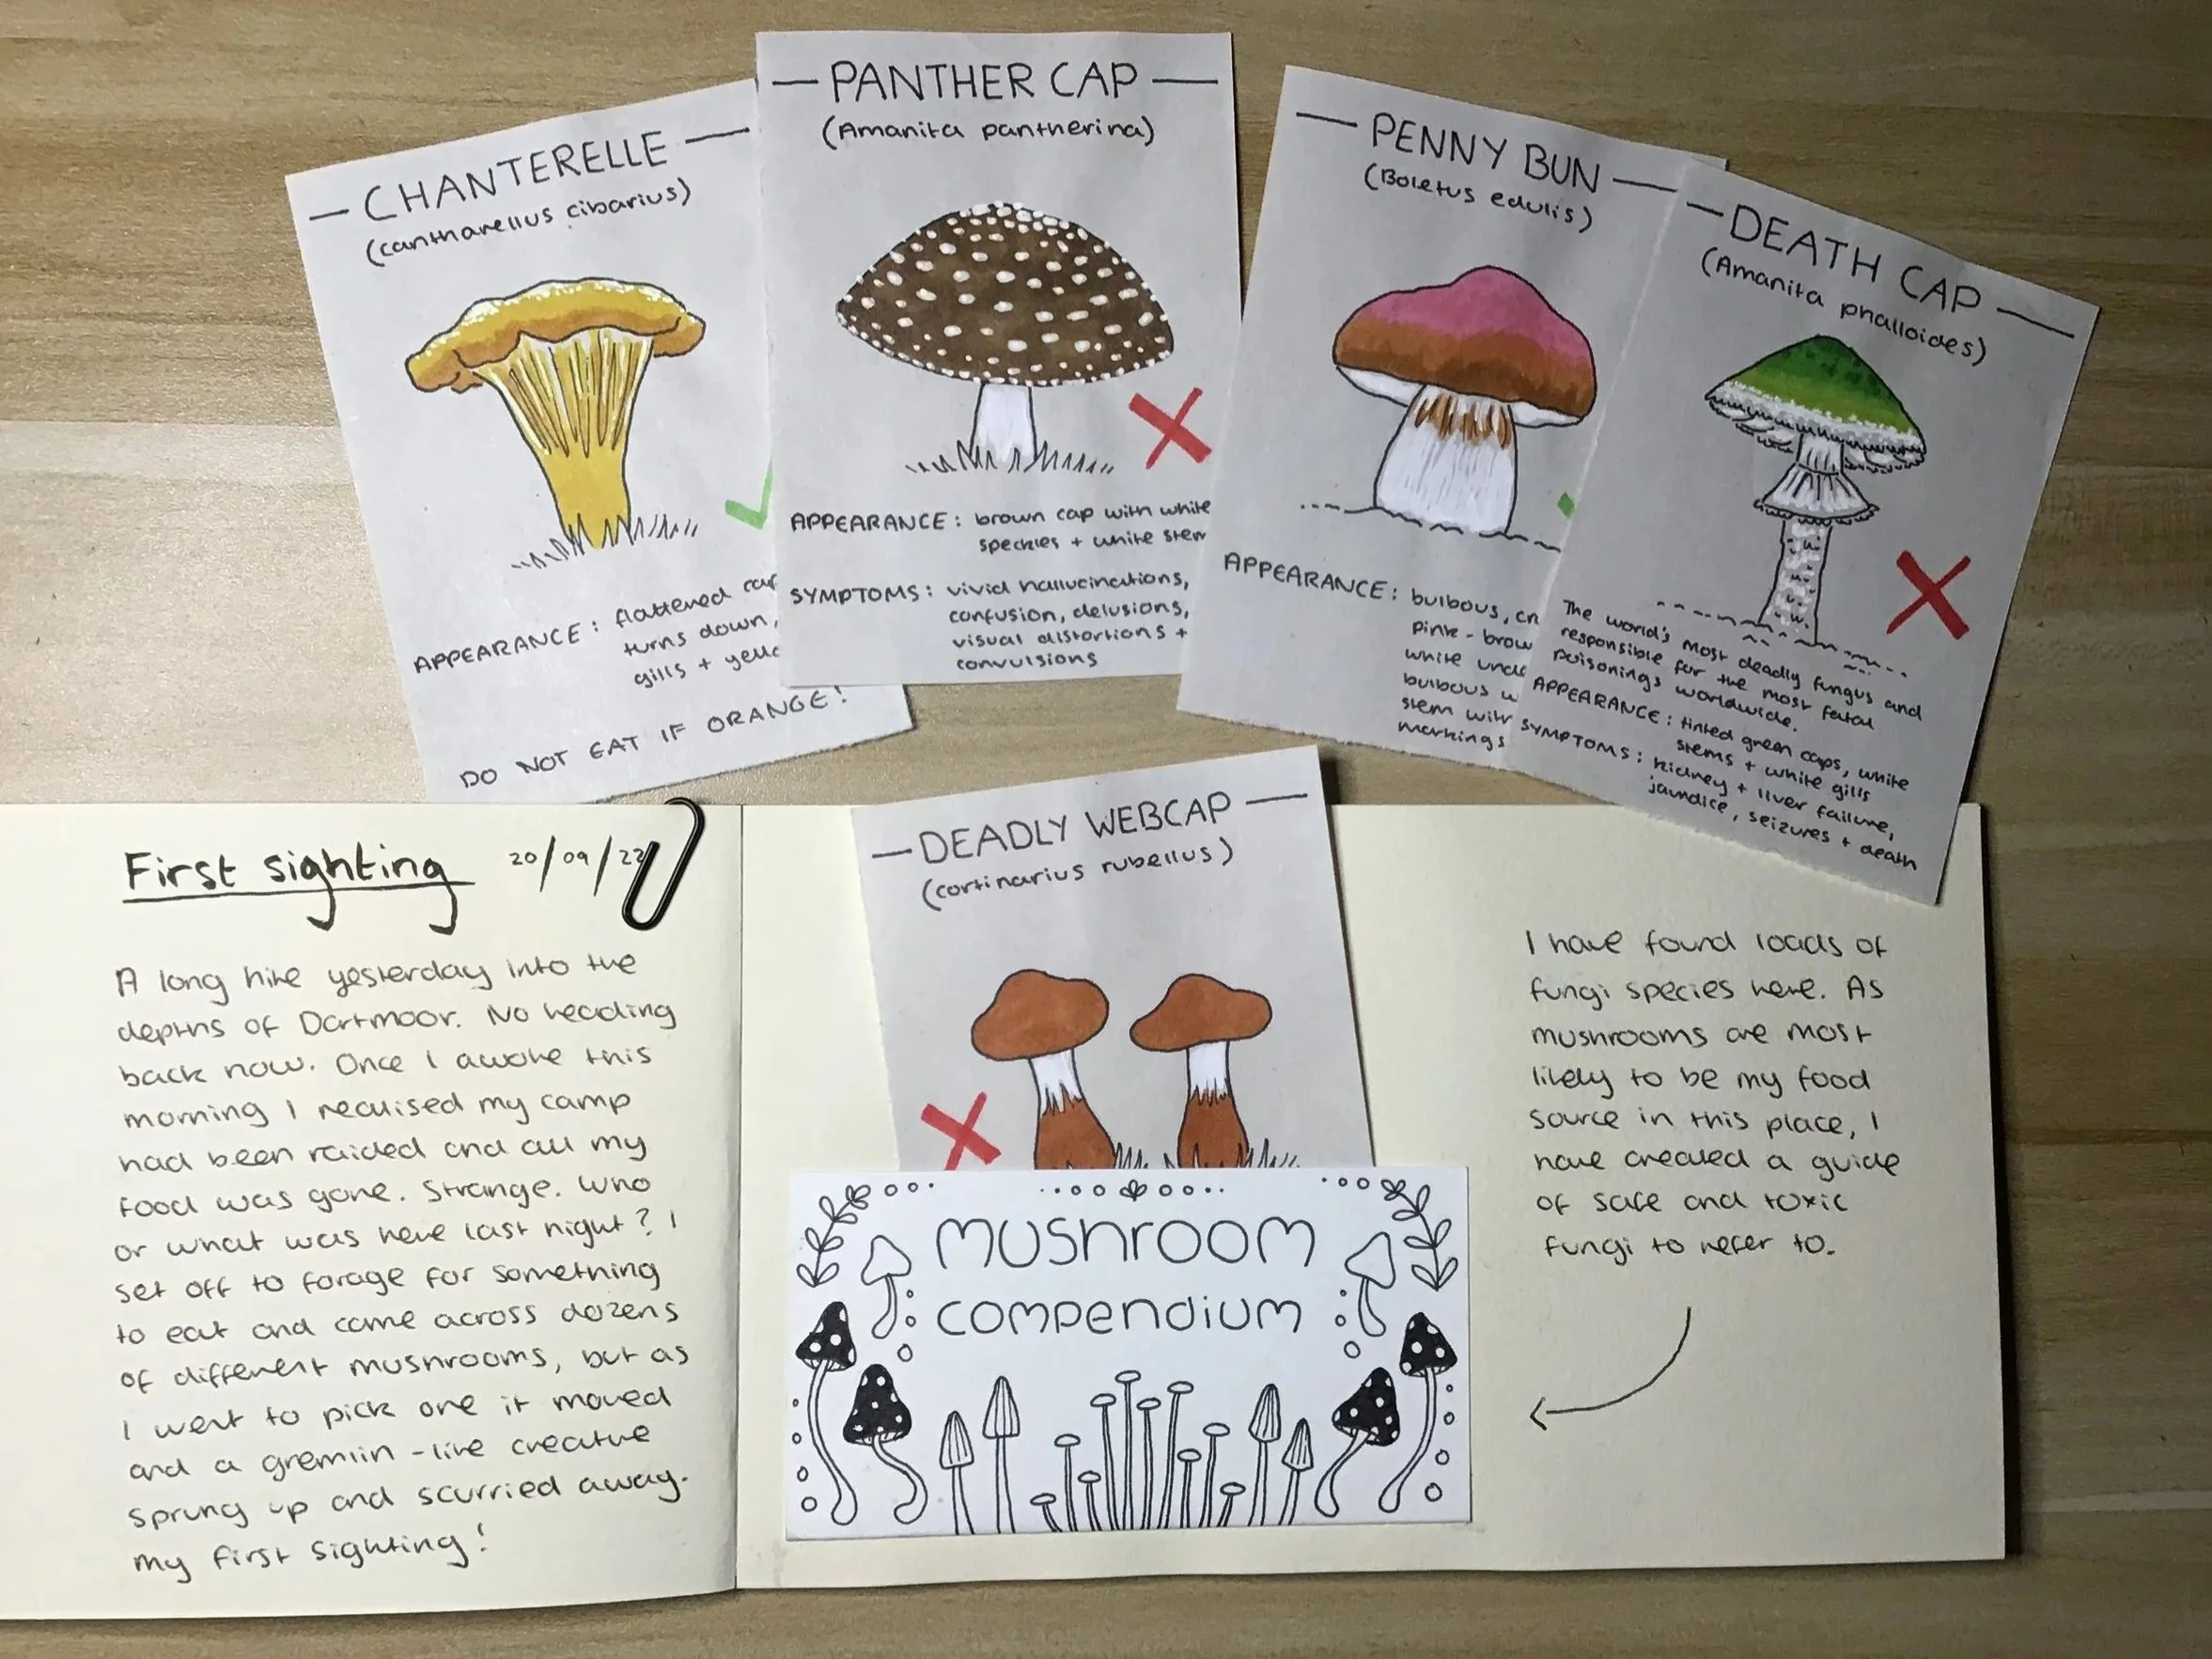 — CHANTERELLE —
(cantharellus cibarius)
APPEARANCE: flattened
turns down,
gills +
DO NOT EAT IF ORANGE!
— PANTHER CAP —
(Amanita pantherina)
APPEARANCE: brown cap with white
speckles + white stem
SYMPTOMS: vivid hallucinations,
confusion, delusions,
visual distortions +
convulsions
— PENNY BUN —
(Boletus edulis)
APPEARANCE: bulbous,
pink - brow
white
bulbous
stem with
markings
— DEATH CAP —
(Amanita phalloides)
The world's most deadly fungus and
responsible for the most fatal
poisonings worldwide.
APPEARANCE: tinted green caps, white
stems + white gills
SYMPTOMS: kidney + liver failure,
jaundice, seizures + death
First sighting 20/09/22
A long hike yesterday into the
depths of Dartmoor. No heading
back now. Once I awoke this
morning I realised my camp
had been raided and all my
food was gone. Strange. Who
or what was here last night? I
set off to forage for something
to eat and came across dozens
of different mushrooms, but as
I went to pick one it moved
and a gremlin-like creature
sprung up and scurried away.
my first sighting!
— DEADLY WEBCAP —
(cortinarius rubellus)
mushroom
compendium
I have found loads of
fungi species here. As
mushrooms are most
likely to be my food
source in this place, I
have created a guide
of safe and toxic
fungi to refer to.